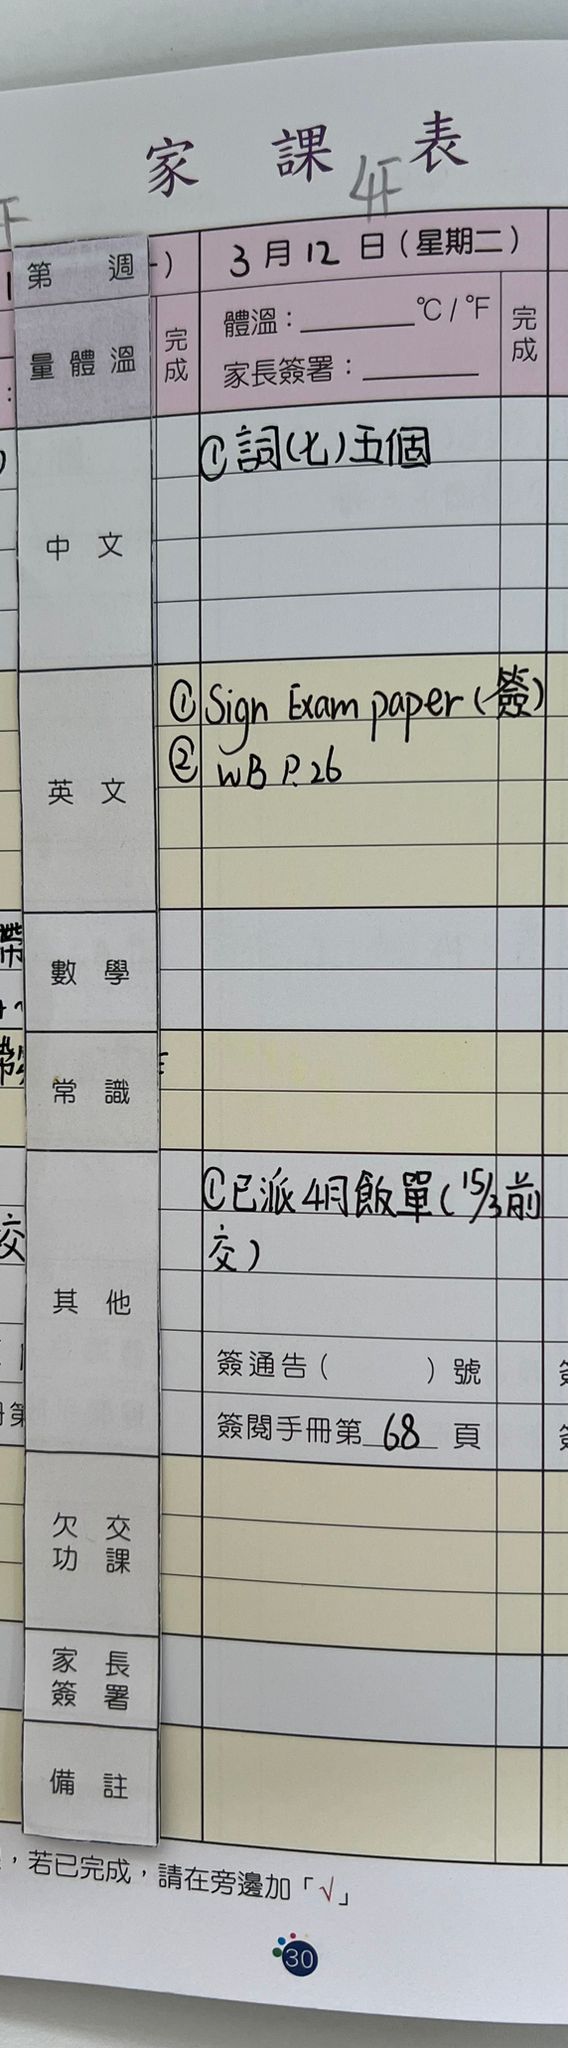 家課表
4F
第 週
3月12日(星期二)
量體溫
完成
體溫: ℃/℉
完成
家長簽署:
中文
①詞(七)五個
英文
① Sign Exam paper (簽)
② WB P.26
數學
常識
其他
①已派4月飯單(15/3前
交)
簽通告( )號
簽閱手冊第 68 頁
欠交
功課
家長
簽署
備註
,若已完成,請在旁邊加「√」
30